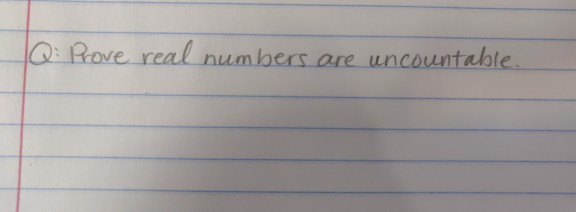 Q: Prove real numbers are uncountable.